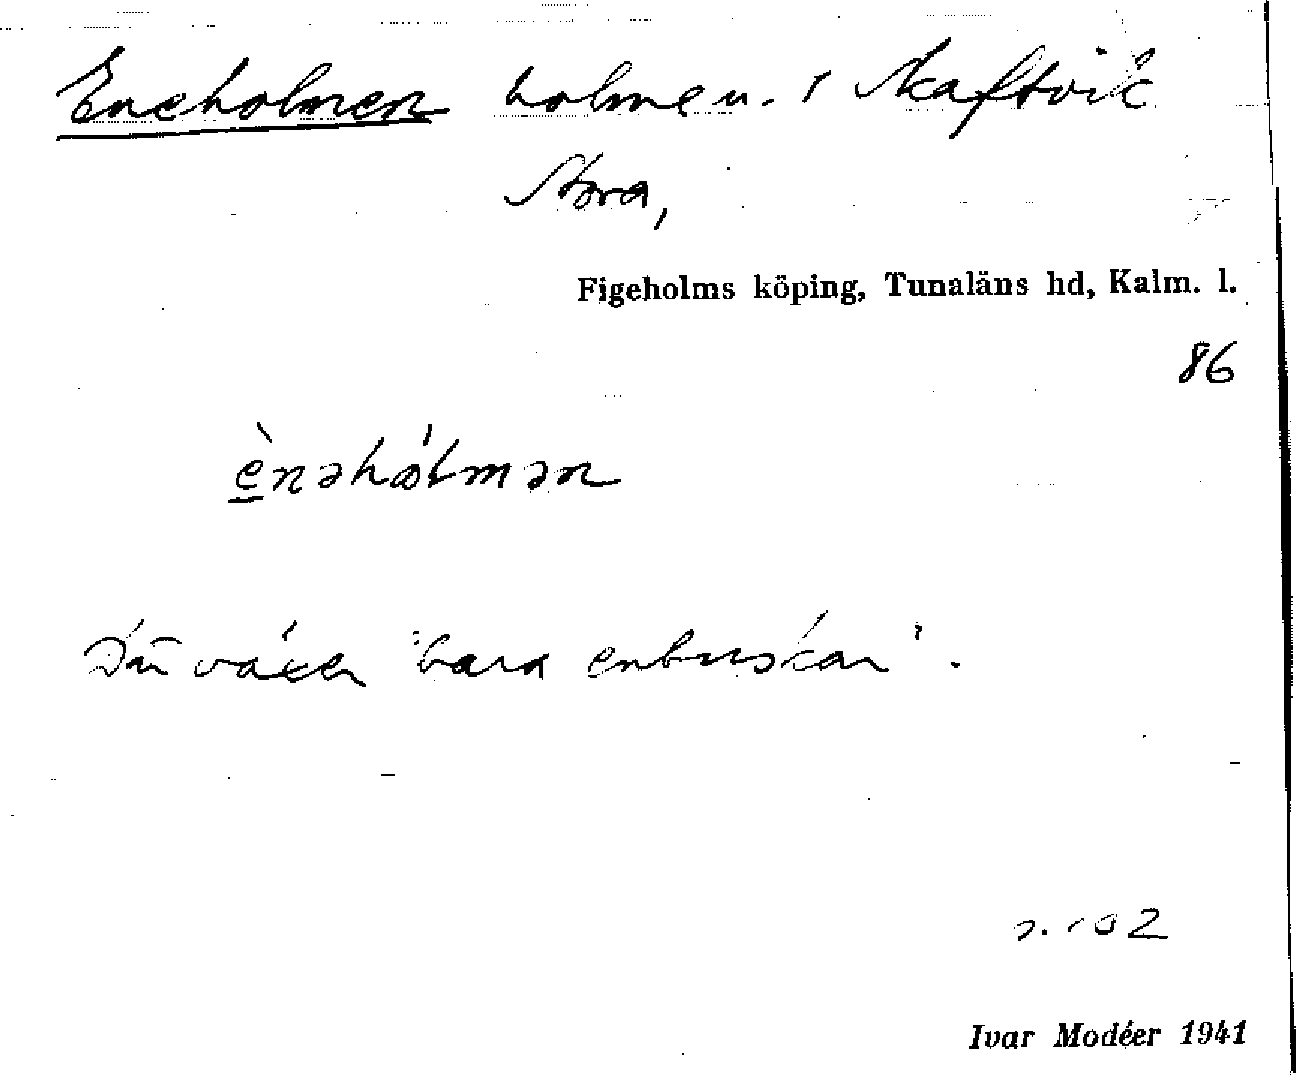 Eneholmen holme u. i Skaftvik
Stora,
Figeholms köping, Tunaläns hd, Kalm. l.
86
è̱nəhólmən
Där växer "bara enbuskar".
s. 102
Ivar Modéer 1941